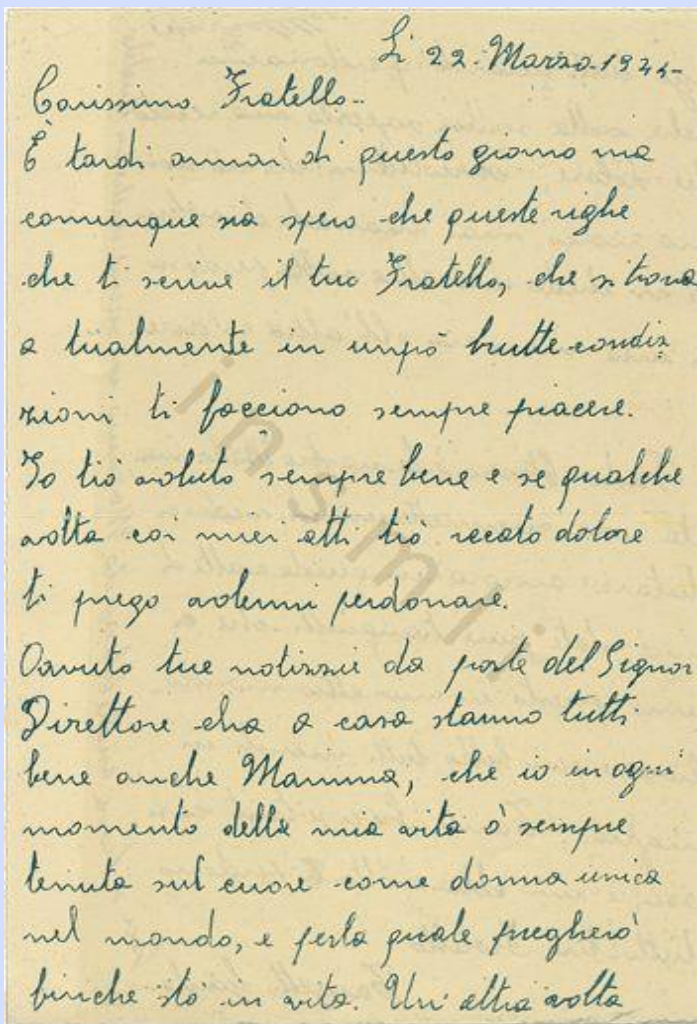 Li 22. Marzo. 1944-
Carissimo Fratello..
È tardi ormai di questo giorno ma
comunque sia spero che queste righe
che ti scrive il tuo Fratello, che si trova
a tualmente in unpò brutte condiz
zioni ti facciano sempre piacere.
Io tiò voluto sempre bene e se qualche
volta coi miei atti tiò recato dolore
ti prego volermi perdonare.
Oavuto tue notizzie da parte del Signor
Direttore cha a casa stanno tutti
bene anche Mamma, che io in ogni
momento della mia vita ò sempre
tenuta sul cuore come donna unica
nel mondo, e perla quale pregherò
binche stò in vita. Un'altra volta
insmli.